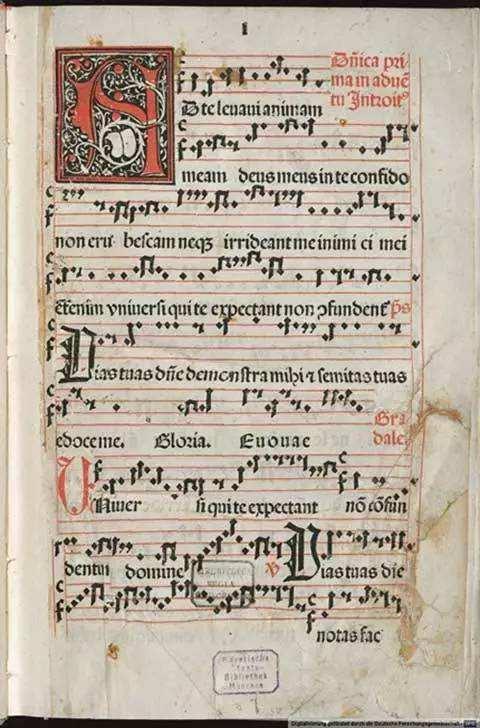 I
Dñica pri
ma in aduē
tu Introit⁹
AD te leuaui animam
meam deus meus in te confido
non eru bescam neqȝ irrideant me inimi ci mei
Etenim vniuersi qui te expectant non ↄfundent̃ p̃s
Uias tuas dñe demonstra mihi ⁊ semitas tuas
edoce me. Gloria. Euouae
Gra
dale.
UNiuer si qui te expectant nō cōfun
dentur domine ℣ Uias tuas die
notas fac
BIBLIOTHECA
REGIA
MONACENSIS
Bayerische
Staats-
Bibliothek
München
Digitalisierung gefördert durch die Deutsche Forschungsgemeinschaft